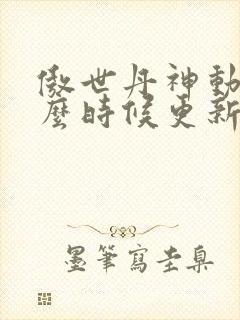 傲世丹神動
麼時候更新
墨筆寫圭臬